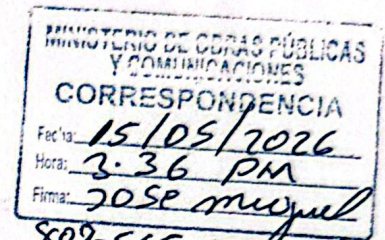 MINISTERIO DE OBRAS PÚBLICAS
Y COMUNICACIONES
CORRESPONDENCIA
Fecha: 15/05/2026
Hora: 3.36 PM
Firma: JOSE miguel